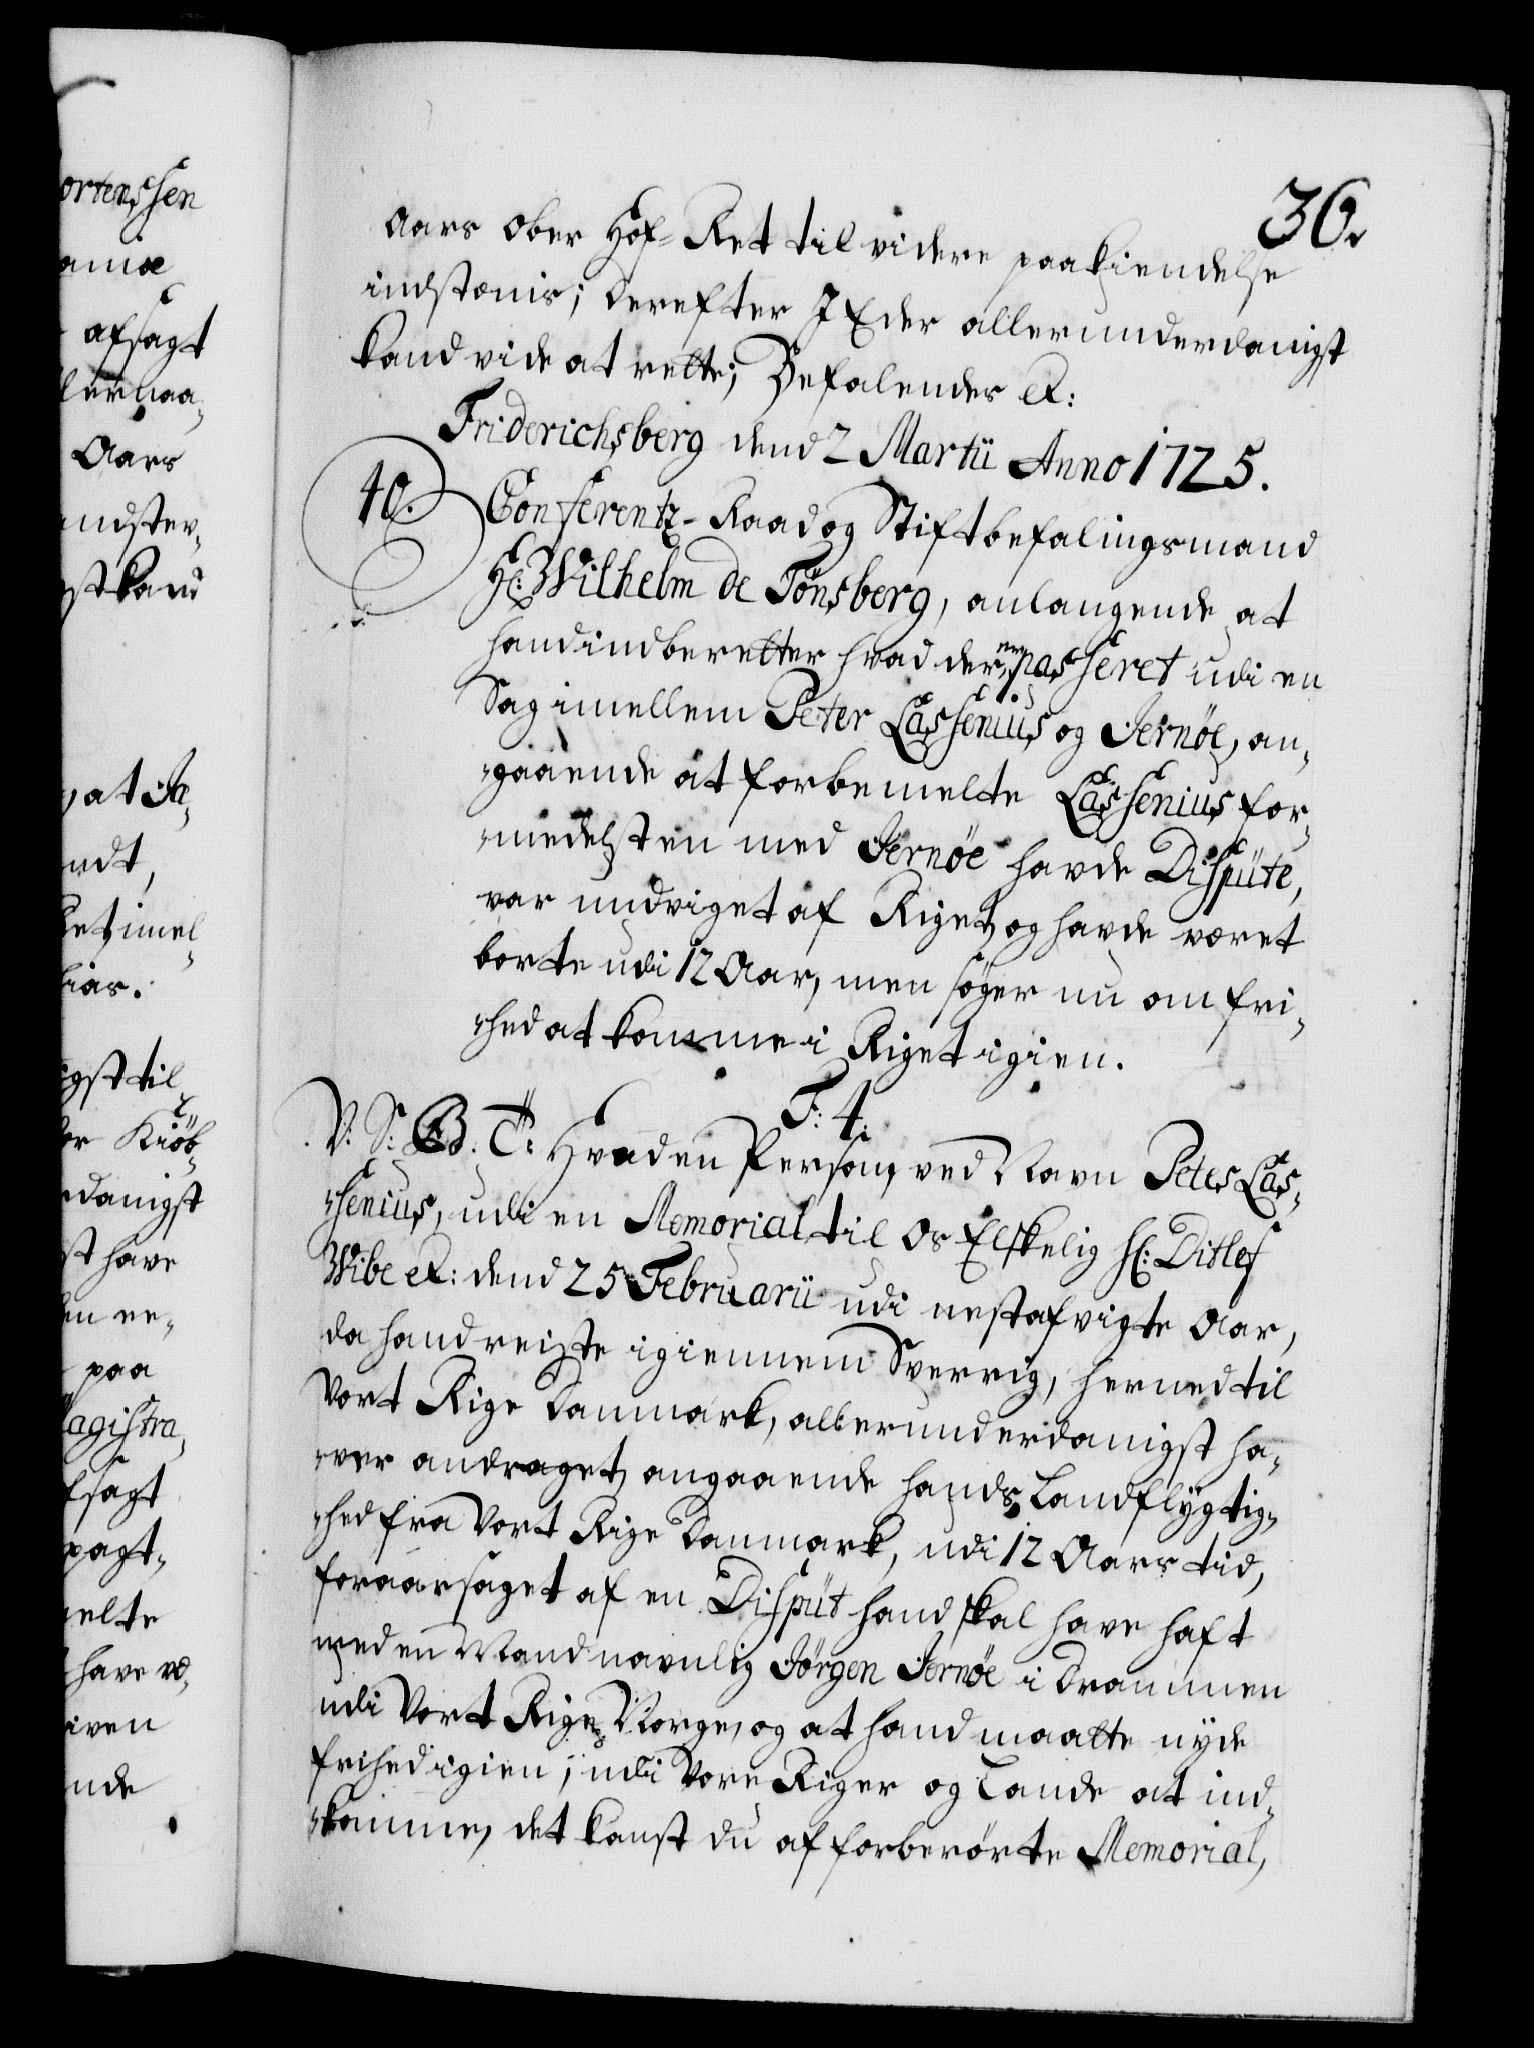 ortenssen
aniæ
afsagt
lernaa¬
Aars
indstev¬
gst kand
, at Ja¬
ndt,
Ret imel¬
lias.
igst til
or Kiöb¬
rdanigst
st have
en er¬
paa
agistra¬
fsagt
pagt¬
melte
have vd¬
iven
nde
36.
Aars Ober Hof-Ret til videre paakiendelse
indstævnis; Derefter I Eder allerunderdanigst
kand vide at rette; Befalendes etc:
Friderichsberg dend 2 Martii Anno 1725.
40. Conferentz-Raad og Stiftbefalingsmand
Hr: Wilhelm de Tönsberg, anlangende at
hand indberetter hvad der er passeret udi en
Sag imellem Peter Lassenius og Jernöe, an¬
gaaende at forbemelte Lassenius for¬
medelst en med Jernöe havde Dispüte,
var undviget af Riget, og havde været
borte udi 12 Aar, men söger nu om fri¬
hed at komme i Riget igien.
F: 4.
V: S: G: B: T: Hvad en Person, ved Navn Peter Las¬
senius, udi en Memorial til Os Elskelig Hr: Ditlef
Wibe etc: dend 25 Februarii udi nestafvigte Aar,
da hand reiste igiennem Sverrig, herned til
Vort Rige Danmark, allerunderdanigst ha¬
ver andraget, angaaende hands Landflÿgtig¬
hed fra Vort Rige Danmark, udi 12 Aars tid,
foraarsaget af en Dispüt hand skal have haft
med en Mand navnlig Jörgen Jernöe i Drammen
udi Vort Rige Norge, og at hand maatte nÿde
frihed igien, udi Vore Riger og Lande at ind¬
komme, det kanst du af forberörte Memorial,